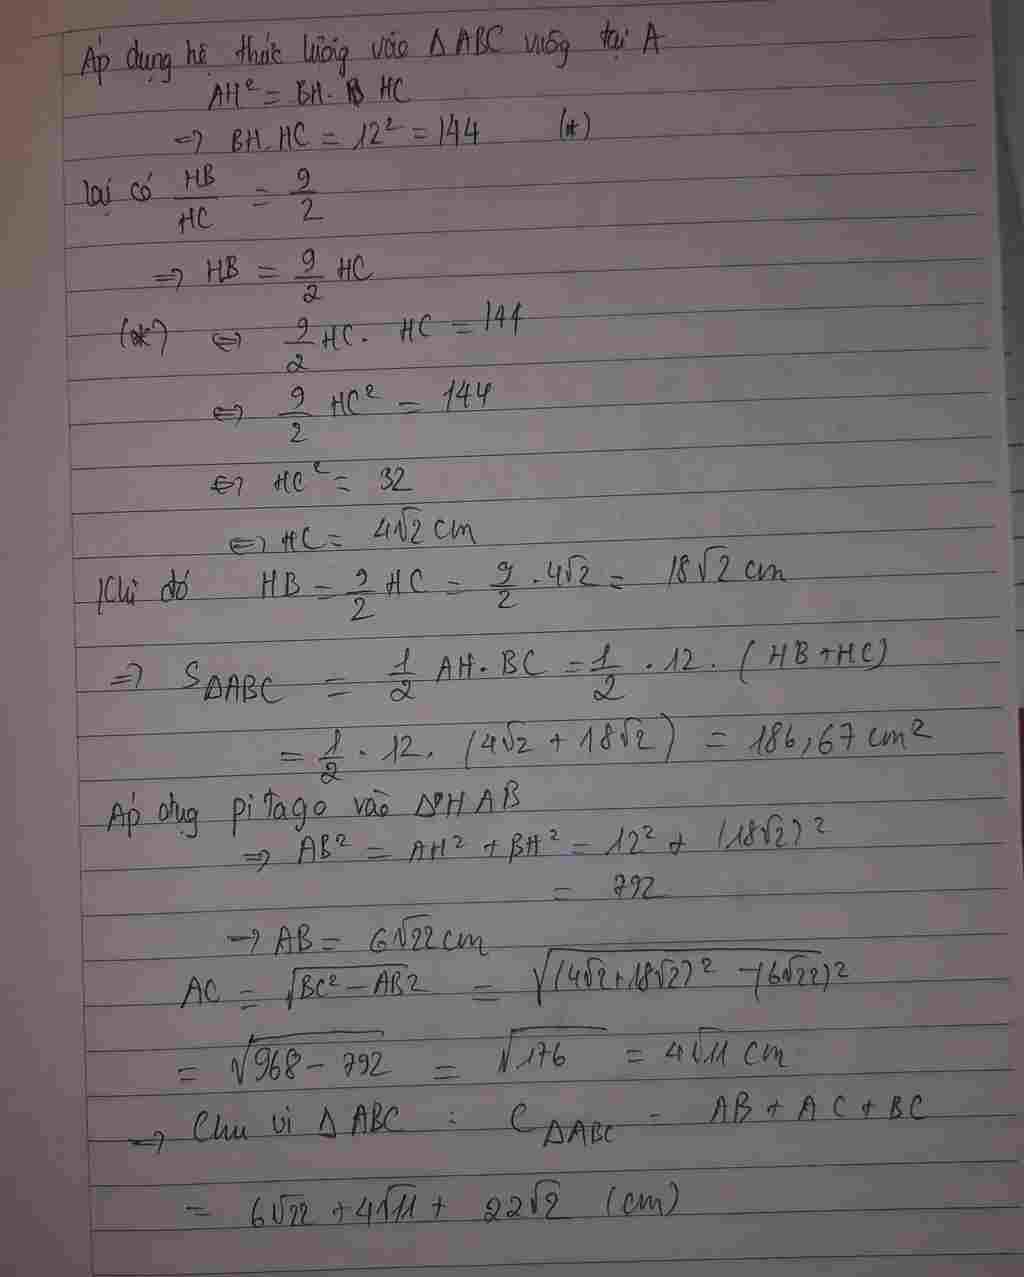 Áp dụng hệ thức lượng vào ΔABC vuông tại A
AH² = BH. HC
=> BH.HC = 12² = 144 (*)
lại có HB/HC = 9/2
=> HB = 9/2 HC
(*) <=> 9/2 HC. HC = 144
<=> 9/2 HC² = 144
<=> HC² = 32
<=> HC = 4√2 cm
Khi đó HB = 9/2 HC = 9/2 . 4√2 = 18√2 cm
=> SΔABC = 1/2 AH.BC = 1/2 . 12. (HB+HC)
= 1/2 . 12. (4√2 + 18√2) = 186,67 cm²
Áp dụng pi tago vào ΔHAB
=> AB² = AH² + BH² = 12² + (18√2)²
= 792
-> AB = 6√22 cm
AC = √(BC² - AB²) = √((4√2+18√2)² - (6√22)²)
= √(968 - 792) = √176 = 4√11 cm
=> Chu vi ΔABC : CΔABC = AB + AC + BC
= 6√22 + 4√11 + 22√2 (cm)